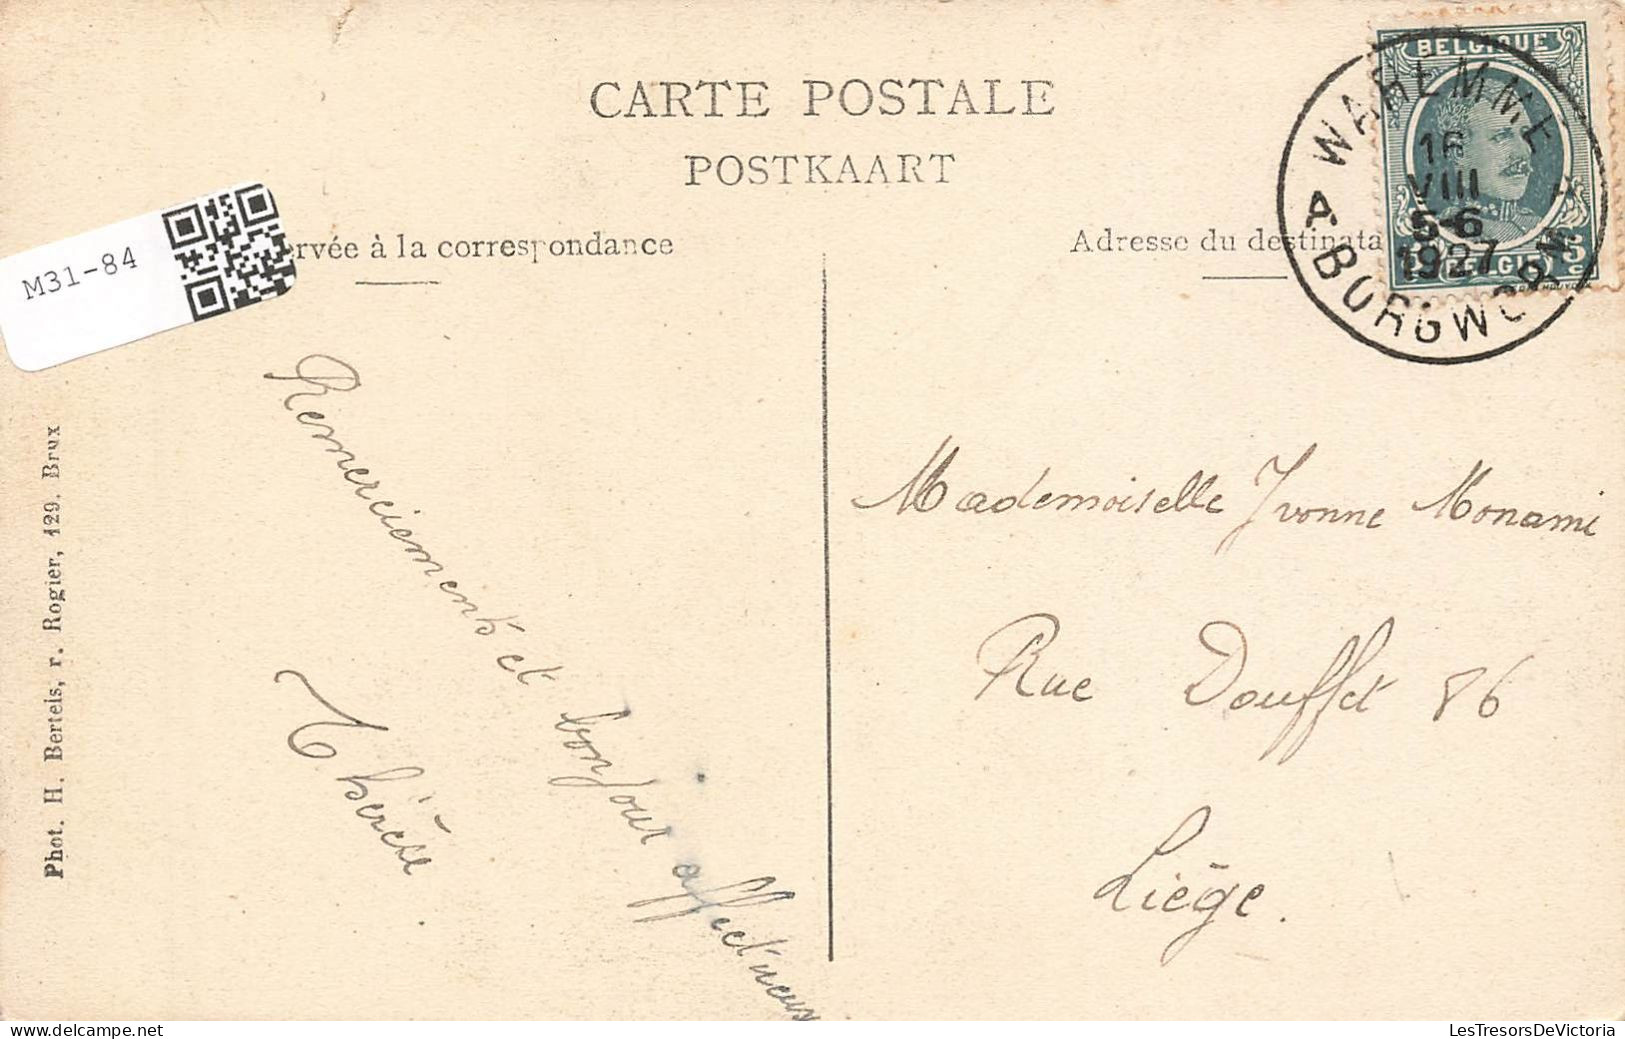 CARTE POSTALE
POSTKAART
ervée à la correspondance
Adresse du destinata
M31-84
BELGIQUE
WAREMME
16
VIII
5-6
1927
A
BORGWORM
BELGIË
5
Phot. H. Bertels, r. Rogier, 129. Brux
Remerciements et bonjour affectueux
Thérèse.
Mademoiselle Yvonne Monami
Rue Douffet 86
Liège.
LesTresorsDeVictoria